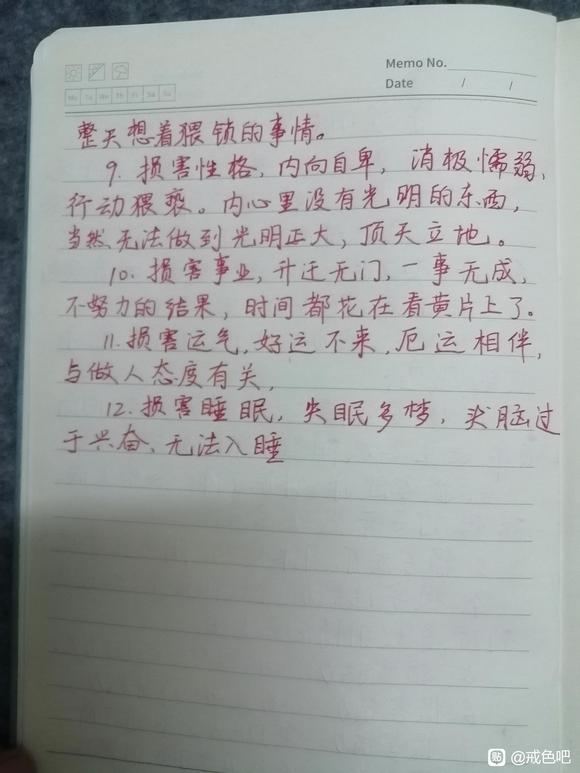 Memo No.
Date / /
Mo Tu We Th Fr Sa Su
整天想着猥锁的事情。
9. 损害性格,内向自卑,消极懦弱、
行动猥亵。内心里没有光明的东西,
当然无法做到光明正大,顶天立地。
10、损害事业,升迁无门,一事无成,
不努力的结果,时间都花在看黄片上了。
11.损害运气,好运不来,厄运相伴,
与做人态度有关,
12、损害睡眠,失眠多梦,头脑过
于兴奋、无法入睡
贴 @戒色吧